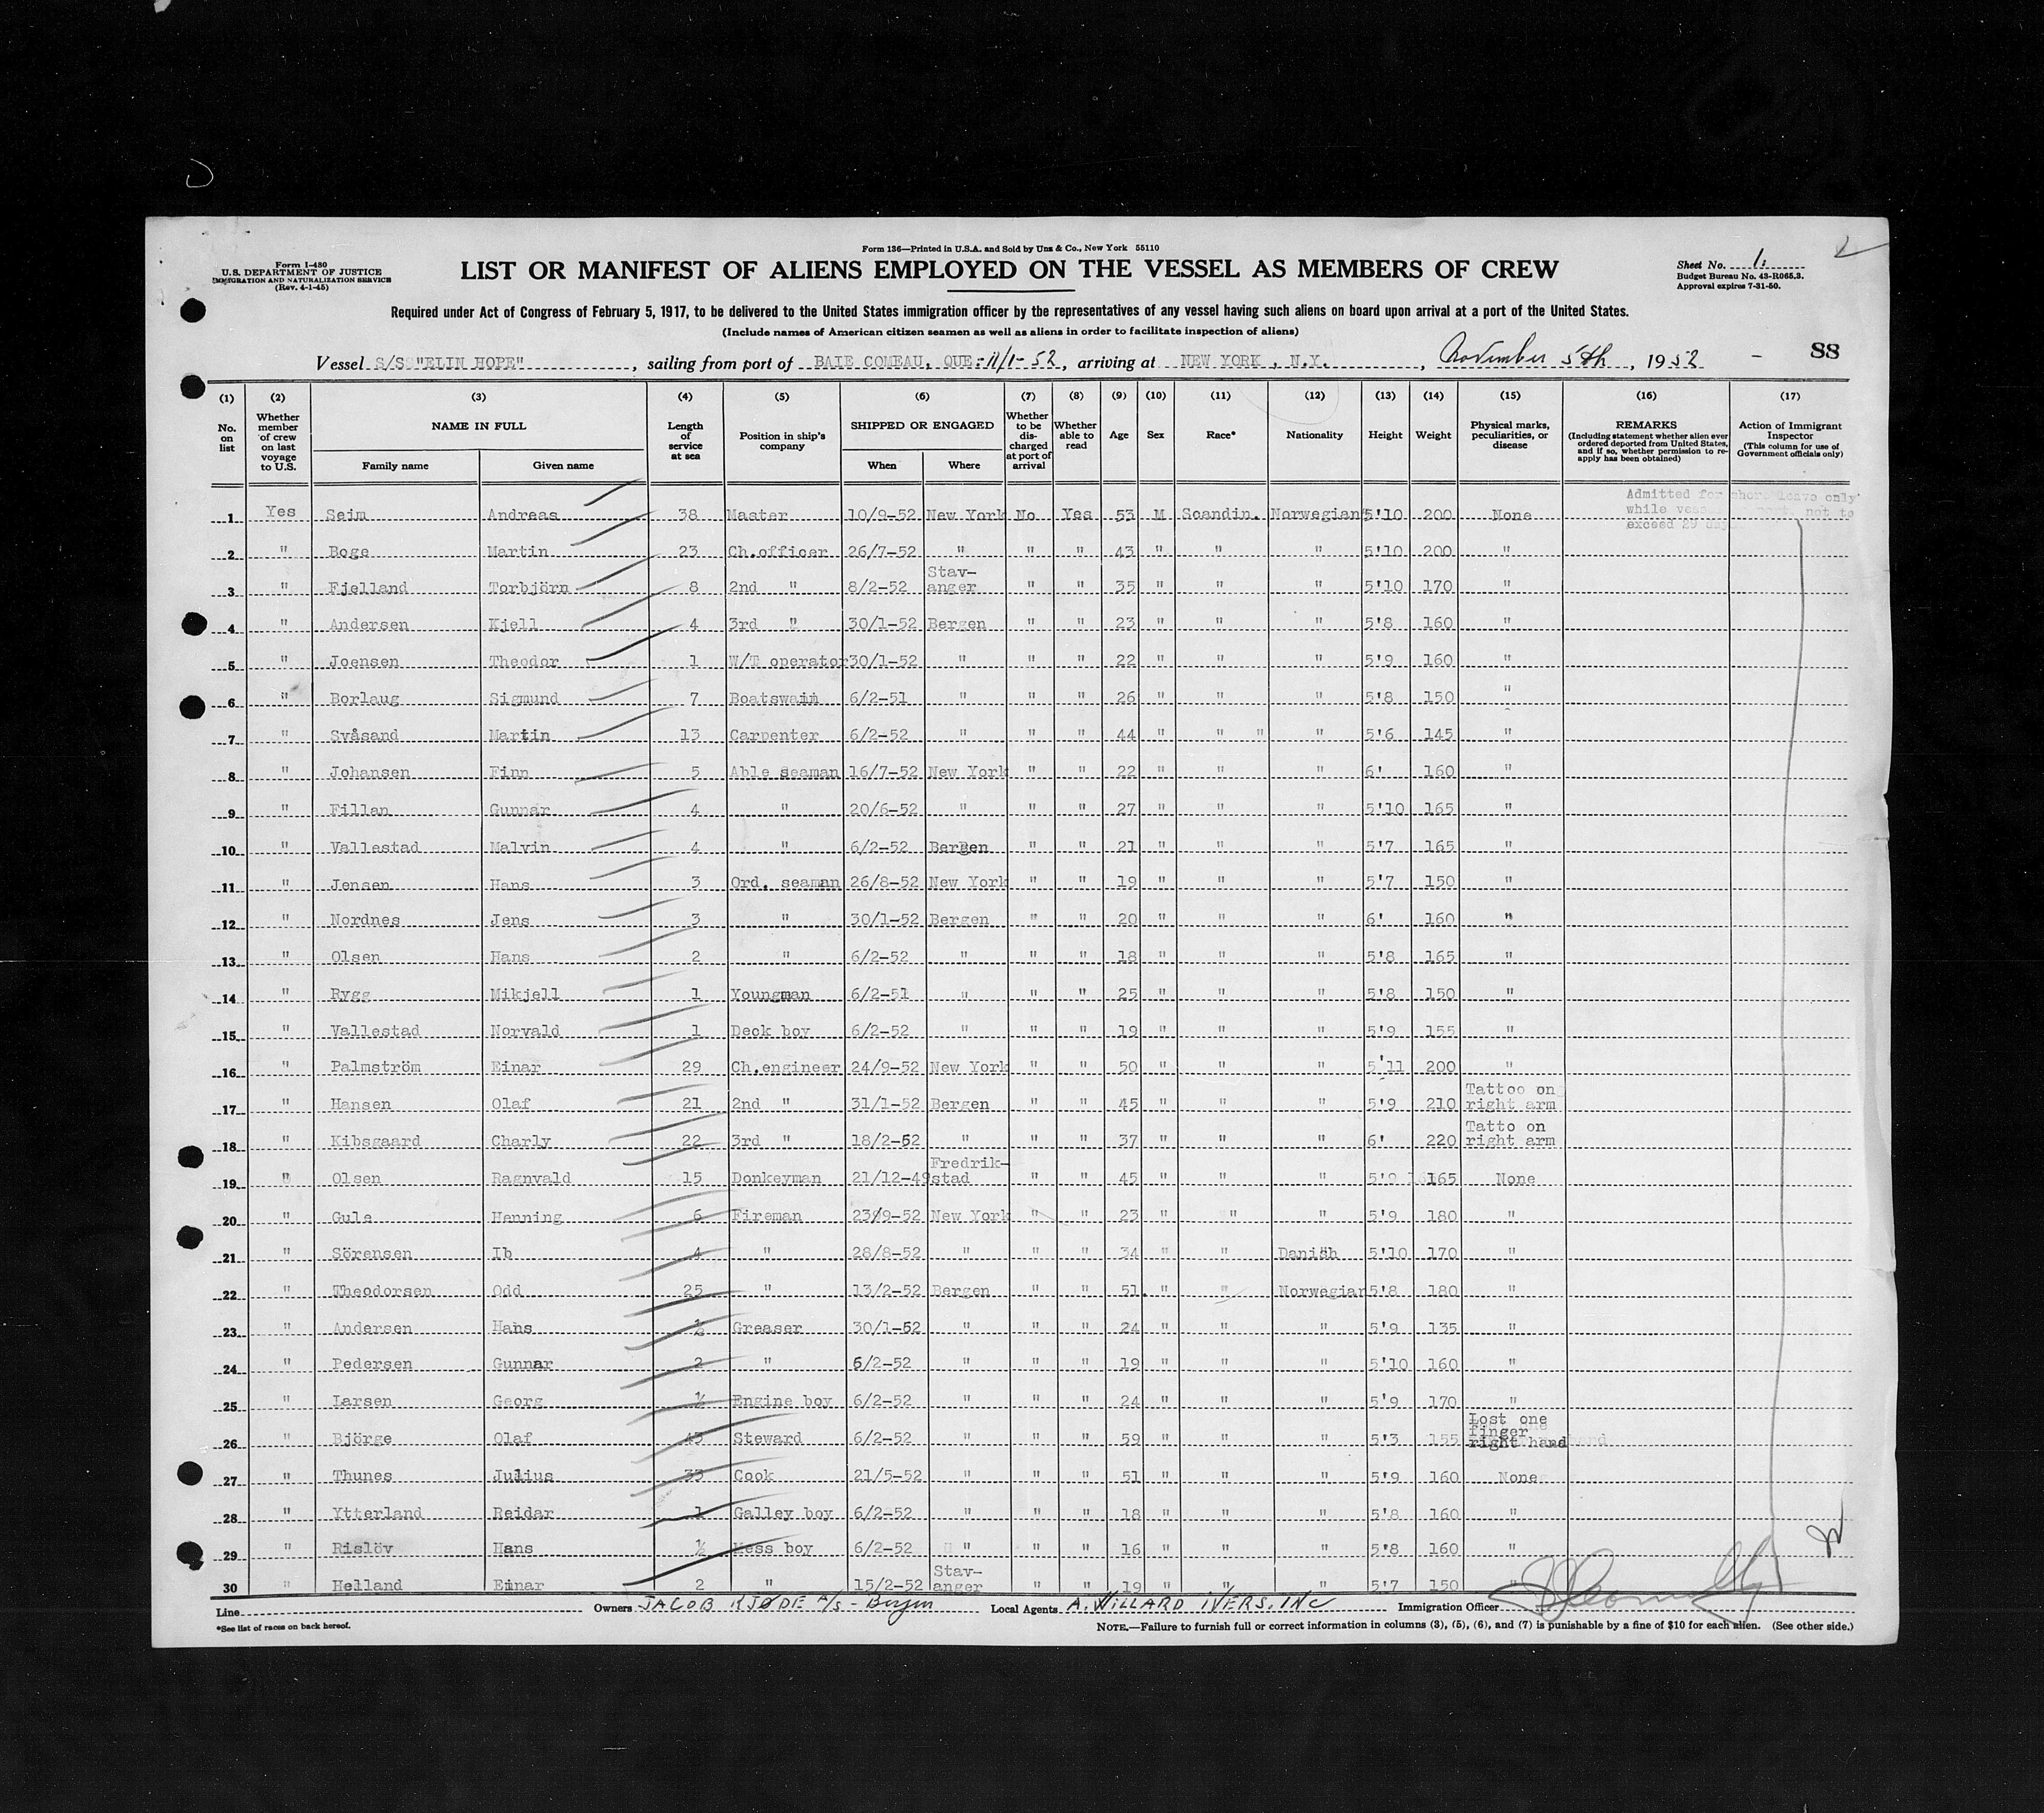 Form 136—Printed in U.S.A. and Sold by Unz & Co., New York 55110
Form I-480
U.S. DEPARTMENT OF JUSTICE
IMMIGRATION AND NATURALIZATION SERVICE
(Rev. 4-1-45)
LIST OR MANIFEST OF ALIENS EMPLOYED ON THE VESSEL AS MEMBERS OF CREW
Sheet No. 1.
Budget Bureau No. 43-R065.3.
Approval expires 7-31-50.
Required under Act of Congress of February 5, 1917, to be delivered to the United States immigration officer by the representatives of any vessel having such aliens on board upon arrival at a port of the United States.
(Include names of American citizen seamen as well as aliens in order to facilitate inspection of aliens)
Vessel S/S "ELIN HOPE", sailing from port of BAIE COMEAU, QUE:-11/1-52, arriving at NEW YORK, N.Y., November 5th, 1952 - 88
(1) No. on list (2) Whether member of crew on last voyage to U.S. (3) NAME IN FULL Family name Given name (4) Length of service at sea (5) Position in ship's company (6) SHIPPED OR ENGAGED When Where (7) Whether to be discharged at port of arrival (8) Whether able to read (9) Age (10) Sex (11) Race* (12) Nationality (13) Height (14) Weight (15) Physical marks, peculiarities, or disease (16) REMARKS (Including statement whether alien ever ordered deported from United States, and if so, whether permission to re-apply has been obtained) (17) Action of Immigrant Inspector (This column for use of Government officials only)
Admitted for shore leave only
while vessel port, not to
exceed 29 days
1 Yes Seim Andreas 38 Master 10/9-52 New York No Yes 53 M Scandin. Norwegian 5'10 200 None
2 " Boge Martin 23 Ch.officer 26/7-52 " " " 43 " " " 5'10 200 "
3 " Fjelland Torbjörn 8 2nd " 8/2-52 Stav-anger " " 35 " " " 5'10 170 "
4 " Andersen Kjell 4 3rd " 30/1-52 Bergen " " 23 " " " 5'8 160 "
5 " Joensen Theodor 1 W/T operator 30/1-52 " " " 22 " " " 5'9 160 "
6 " Borlaug Sigmund 7 Boatswain 6/2-51 " " " 26 " " " 5'8 150 "
7 " Svåsand Martin 13 Carpenter 6/2-52 " " " 44 " " " " 5'6 145 "
8 " Johansen Finn 5 Able seaman 16/7-52 New York " " 22 " " " 6' 160 "
9 " Fillan Gunnar 4 " 20/6-52 " " " 27 " " " 5'10 165 "
10 " Vallestad Malvin 4 " 6/2-52 Bergen " " 21 " " " 5'7 165 "
11 " Jensen Hans 3 Ord. seaman 26/8-52 New York " " 19 " " " 5'7 150 "
12 " Nordnes Jens 3 " 30/1-52 Bergen " " 20 " " " 6' 160 "
13 " Olsen Hans 2 " 6/2-52 " " " 18 " " " 5'8 165 "
14 " Rygg Mikjell 1 Youngman 6/2-51 " " " 25 " " " 5'8 150 "
15 " Vallestad Norvald 1 Deck boy 6/2-52 " " " 19 " " " 5'9 155 "
16 " Palmström Einar 29 Ch.engineer 24/9-52 New York " " 50 " " " 5'11 200 "
17 " Hansen Olaf 21 2nd " 31/1-52 Bergen " " 45 " " " 5'9 210 Tattoo on right arm
18 " Kibsgaard Charly 22 3rd " 18/2-52 " " " 37 " " " 6' 220 Tatto on right arm
19 " Olsen Ragnvald 15 Donkeyman 21/12-49 Fredrik-stad " " 45 " " " 5'9 165 None
20 " Gule Henning 6 Fireman 23/9-52 New York " " 23 " " " 5'9 180 "
21 " Sörensen Ib 4 " 28/8-52 " " " 34 " " Danish 5'10 170 "
22 " Theodorsen Odd 25 " 13/2-52 Bergen " " 51 " " Norwegian 5'8 180 "
23 " Andersen Hans ½ Greaser 30/1-52 " " " 24 " " " 5'9 135 "
24 " Pedersen Gunnar 2 " 6/2-52 " " " 19 " " " 5'10 160 "
25 " Larsen Georg ½ Engine boy 6/2-52 " " " 24 " " " 5'9 170 "
26 " Björge Olaf 43 Steward 6/2-52 " " " 59 " " " 5'3 155 Lost one finger right hand
27 " Thunes Julius 33 Cook 21/5-52 " " " 51 " " " 5'9 160 None
28 " Ytterland Reidar 1 Galley boy 6/2-52 " " " 18 " " " 5'8 160 "
29 " Rislöv Hans ½ Mess boy 6/2-52 " " " 16 " " " 5'8 160 "
30 " Helland Einar 2 " 15/2-52 Stav-anger " " 19 " " " 5'7 150 "
Line Owners JACOB KJØDE A/S - Bergen Local Agents A. WILLARD IVERS. INC Immigration Officer
*See list of races on back hereof.
NOTE.—Failure to furnish full or correct information in columns (3), (5), (6), and (7) is punishable by a fine of $10 for each alien. (See other side.)